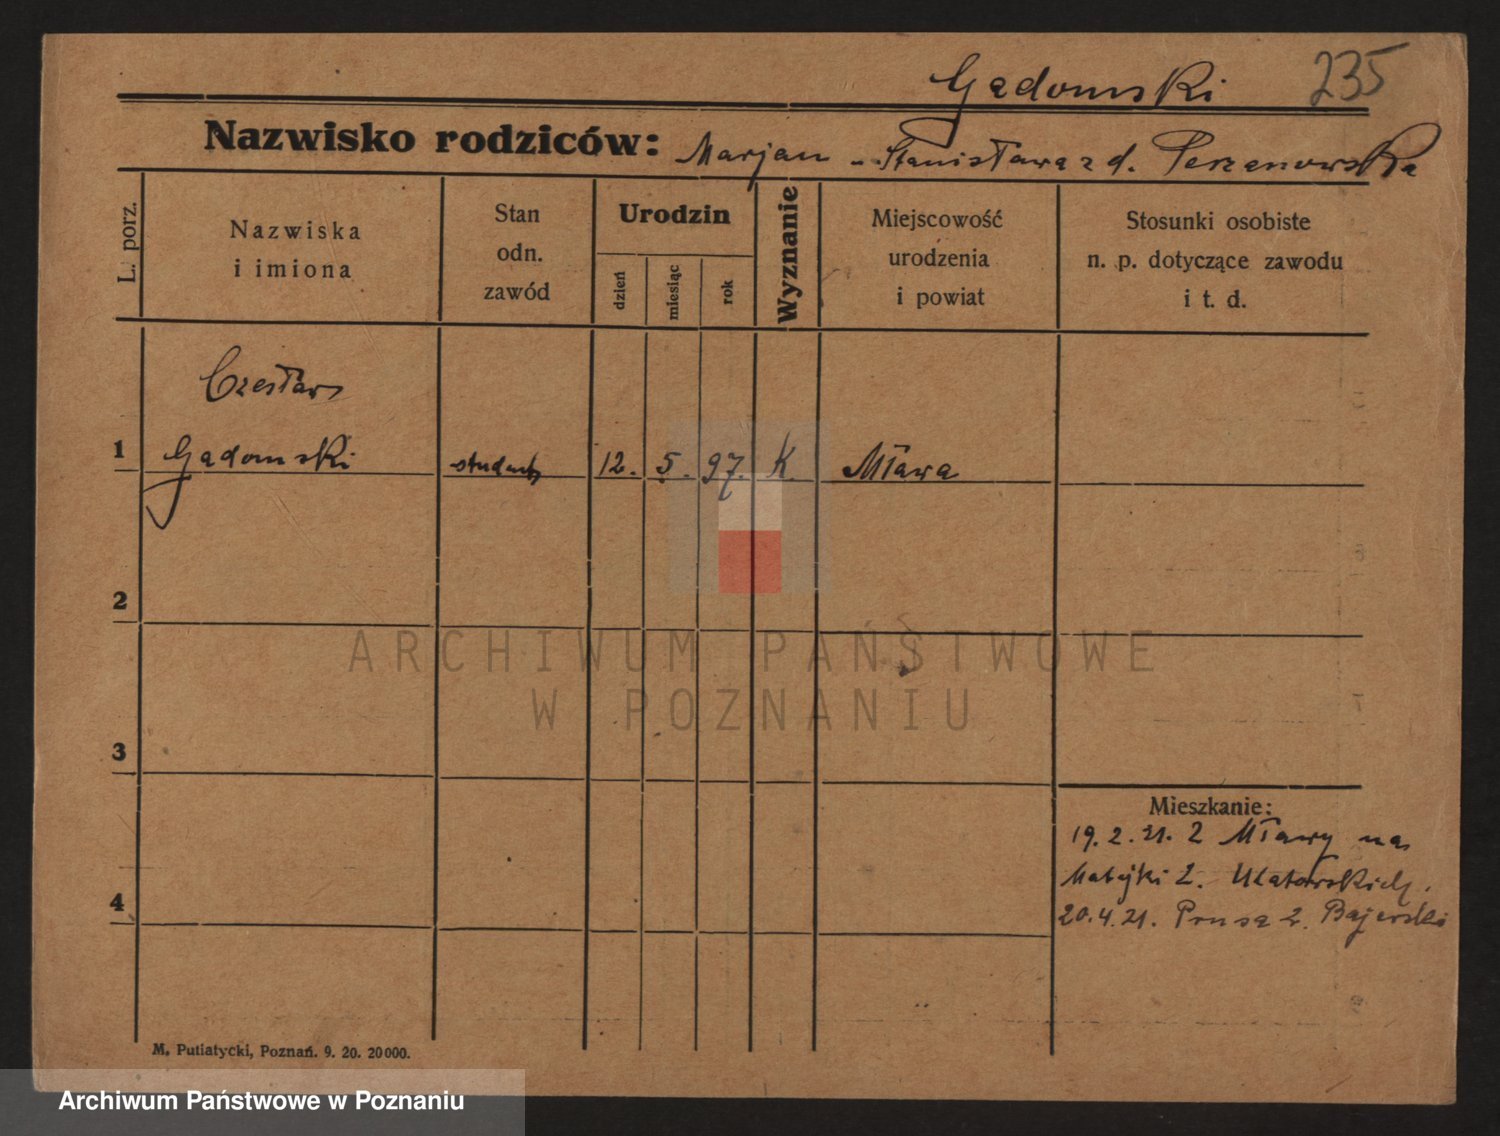 Gadomski 235
Nazwisko rodziców: Marjan - Stanisława z d. Perzanowska
L. porz.
Nazwiska
i imiona
Stan
odn.
zawód
Urodzin
dzień
miesiąc
rok
Wyznanie
Miejscowość
urodzenia
i powiat
Stosunki osobiste
n. p. dotyczące zawodu
i t. d.
Czesław
1 Gadomski student 12. 5. 97. K. Mława
2
ARCHIWUM PAŃSTWOWE
W POZNANIU
3
Mieszkanie:
19. 2. 21. z Mławy na
Matejki 2. Ulatowskich.
20. 4. 21. Prusa 2. Bajerski
4
M. Putiatycki, Poznań. 9. 20. 20000.
Archiwum Państwowe w Poznaniu